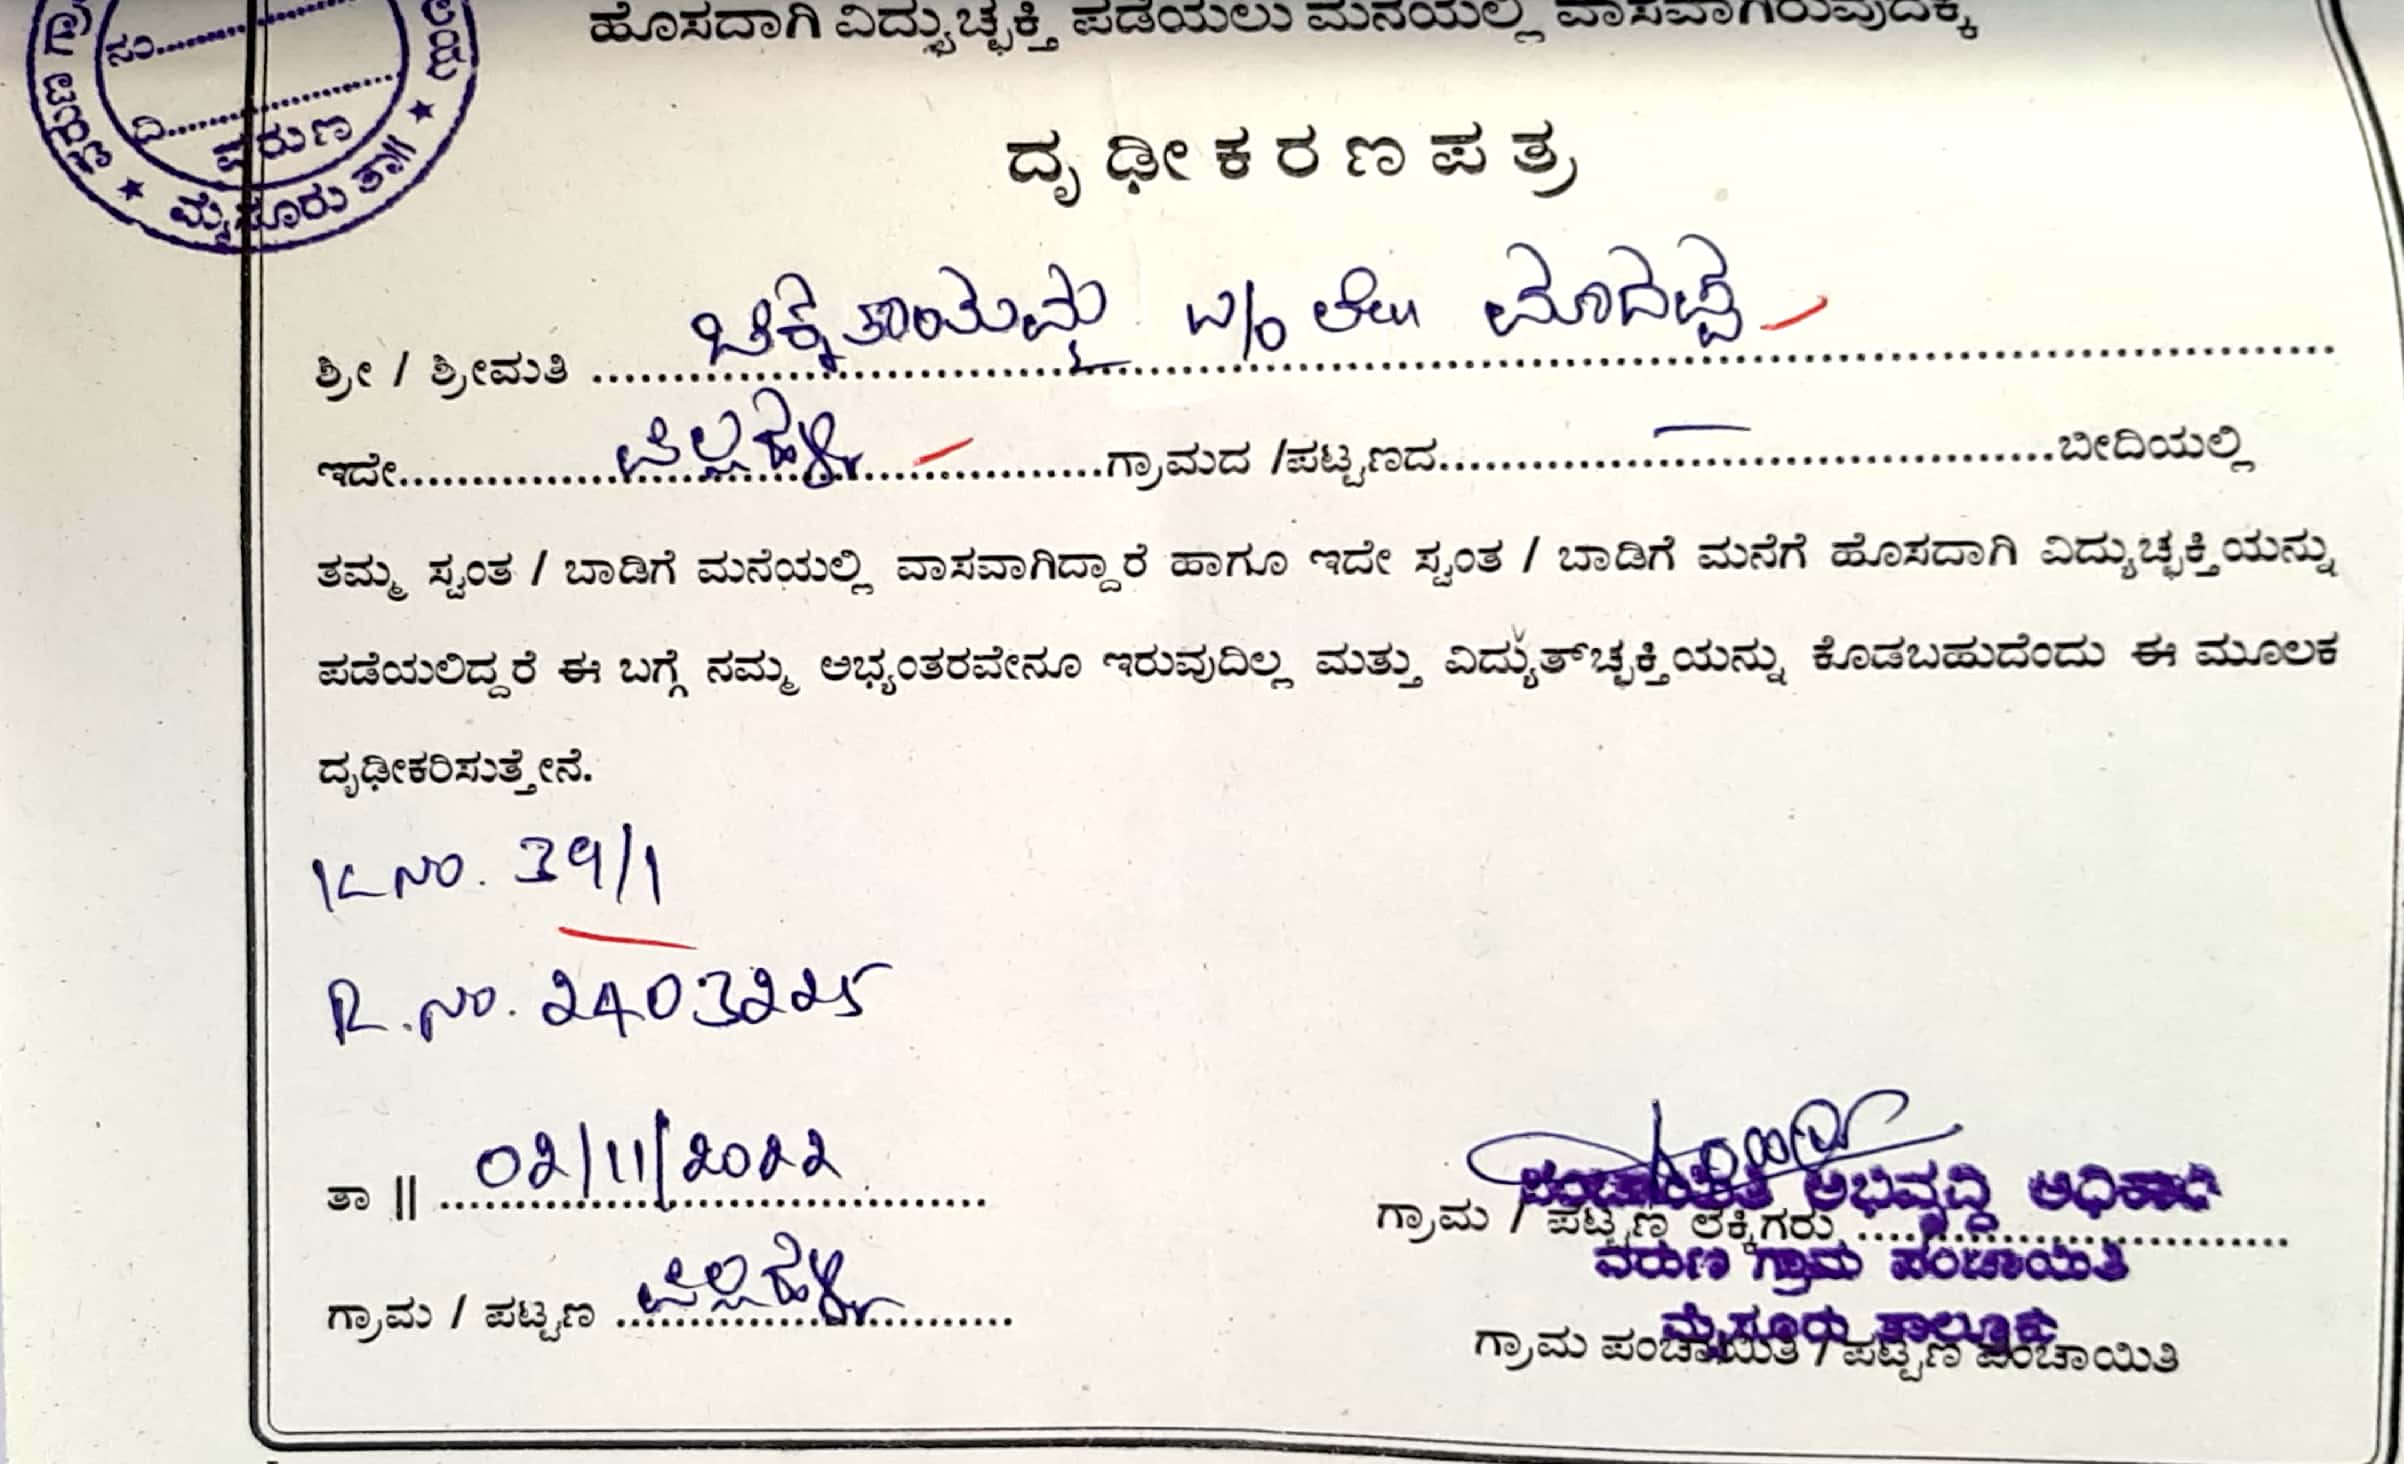 ಹೊಸದಾಗಿ ವಿದ್ಯುಚ್ಛಕ್ತಿ ಪಡೆಯಲು ಮನೆಯಲ್ಲಿ ವಾಸವಾಗಿರುವುದಕ್ಕೆ
ನಂ..........
ದಿ..........
ವರುಣ
★ ಮೈಸೂರು ತಾ|| ★
ದೃಢೀಕರಣಪತ್ರ
ಶ್ರೀ / ಶ್ರೀಮತಿ ಚಿಕ್ಕತಾಯಮ್ಮ ಮಾದಪ್ಪ
ಇದೇ..........ಗ್ರಾಮದ /ಪಟ್ಟಣದ.......... — ..........ಬೀದಿಯಲ್ಲಿ
ತಮ್ಮ ಸ್ವಂತ / ಬಾಡಿಗೆ ಮನೆಯಲ್ಲಿ ವಾಸವಾಗಿದ್ದಾರೆ ಹಾಗೂ ಇದೇ ಸ್ವಂತ / ಬಾಡಿಗೆ ಮನೆಗೆ ಹೊಸದಾಗಿ ವಿದ್ಯುಚ್ಛಕ್ತಿಯನ್ನು
ಪಡೆಯಲಿದ್ದರೆ ಈ ಬಗ್ಗೆ ನಮ್ಮ ಅಭ್ಯಂತರವೇನೂ ಇರುವುದಿಲ್ಲ ಮತ್ತು ವಿದ್ಯುತ್‌ಚ್ಛಕ್ತಿಯನ್ನು ಕೊಡಬಹುದೆಂದು ಈ ಮೂಲಕ
ದೃಢೀಕರಿಸುತ್ತೇನೆ.
K No. 39/1
R. No. 2403225
ತಾ || 02/11/2022
ಪಂಚಾಯಿತಿ ಅಭಿವೃದ್ಧಿ ಅಧಿಕಾರಿ
ಗ್ರಾಮ / ಪಟ್ಟಣ ಲೆಕ್ಕಿಗರು..........
ವರುಣ ಗ್ರಾಮ ಪಂಚಾಯಿತಿ
ಗ್ರಾಮ / ಪಟ್ಟಣ ..........
ಮೈಸೂರು ತಾಲ್ಲೂಕು
ಗ್ರಾಮ ಪಂಚಾಯಿತಿ / ಪಟ್ಟಣ ಪಂಚಾಯಿತಿ